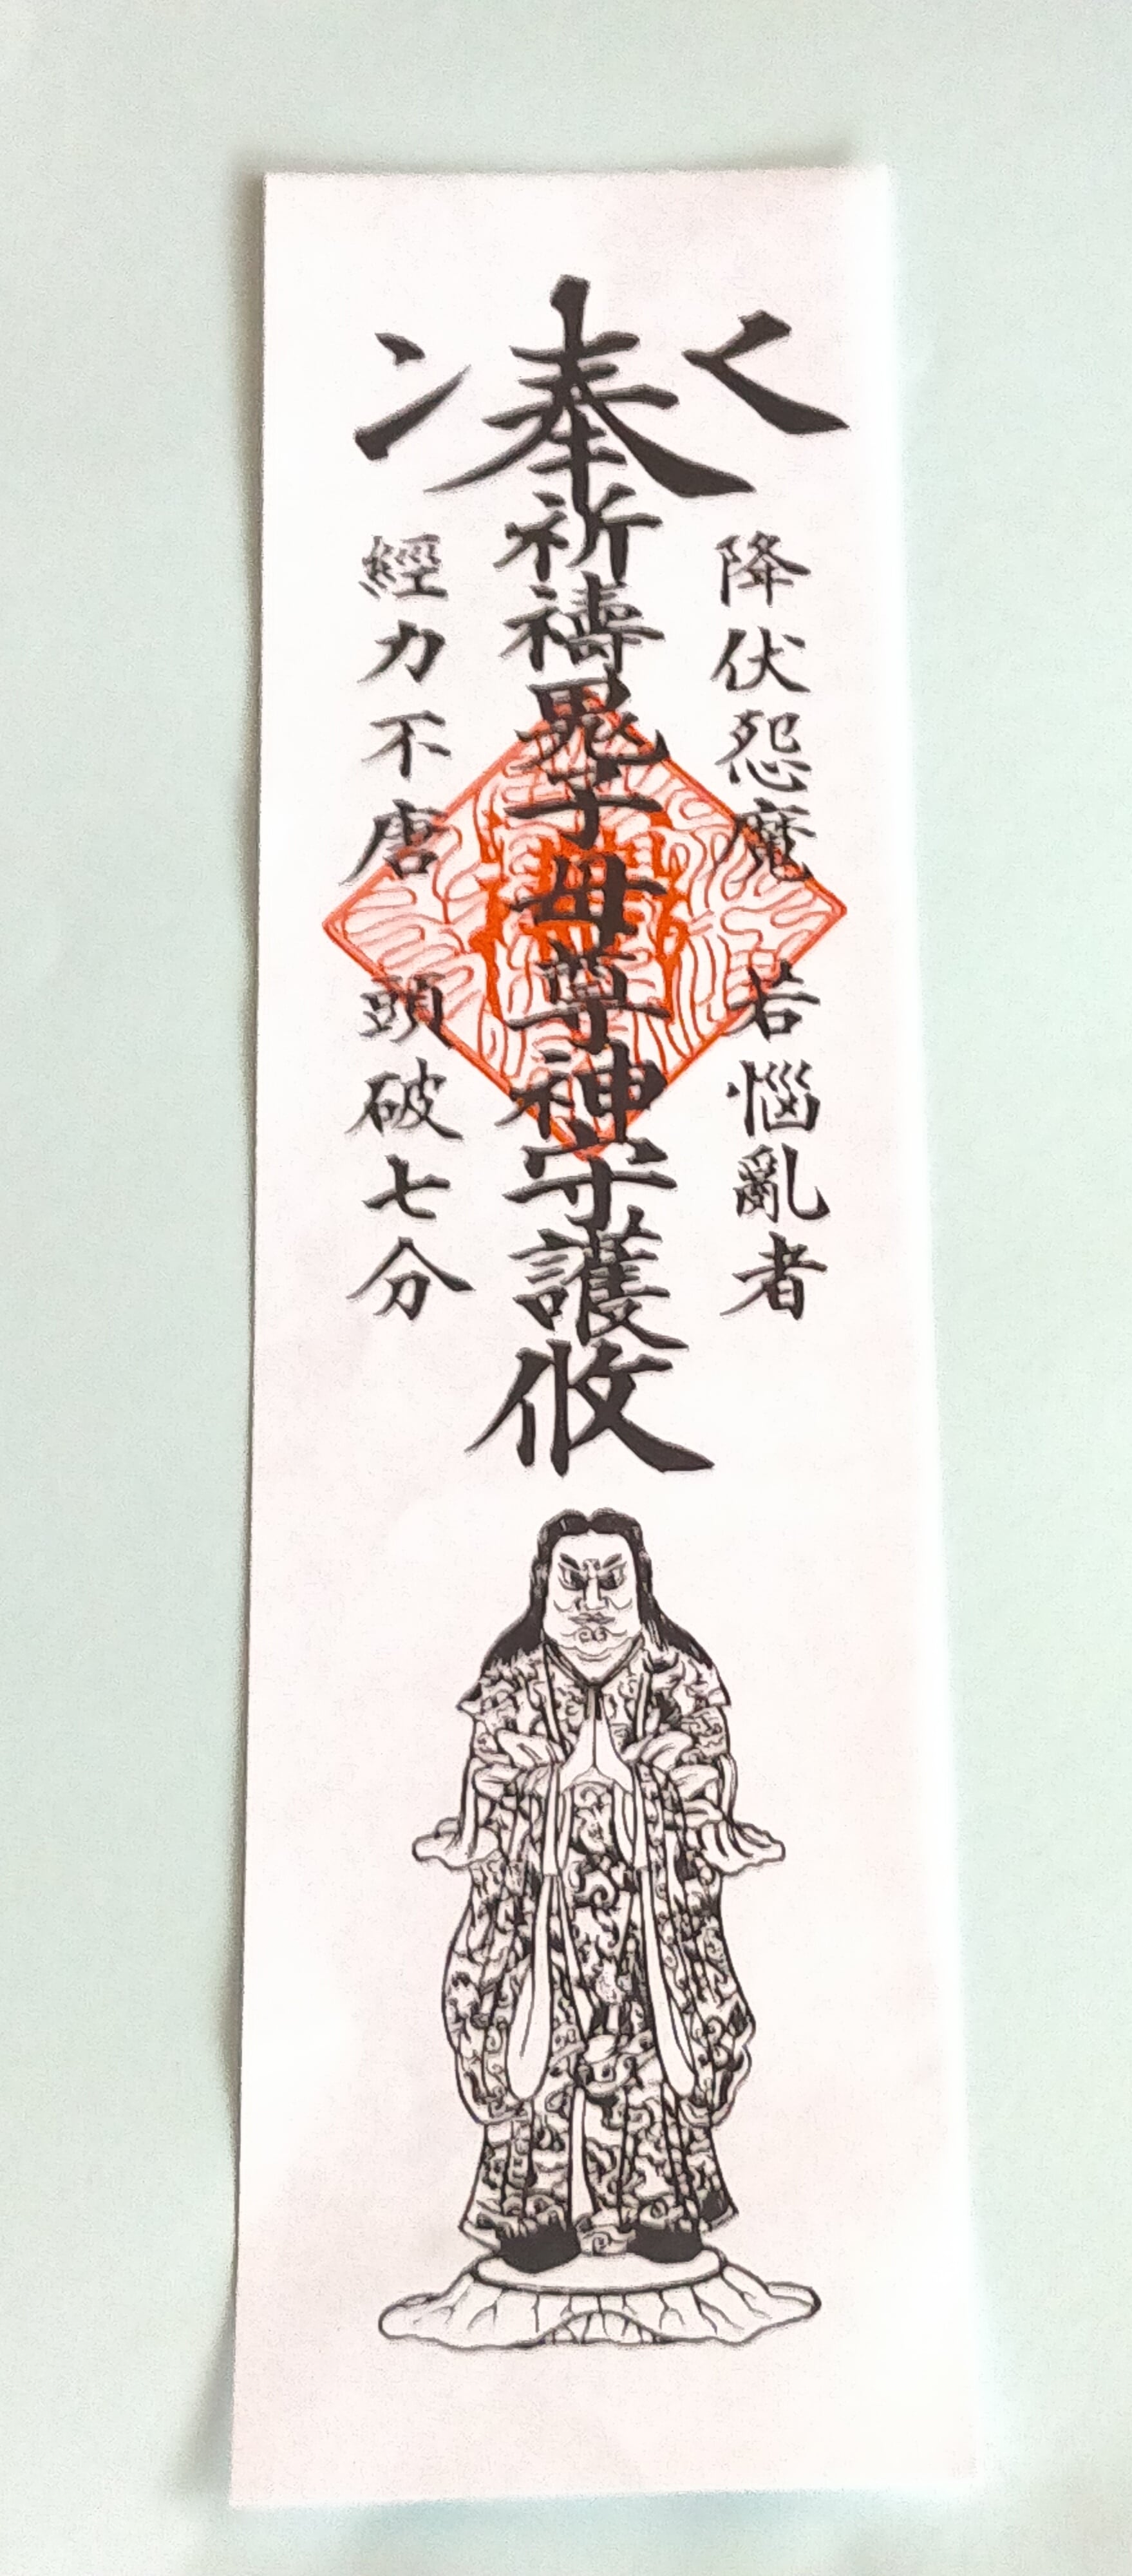 降伏怨魔 若惱亂者
奉祈禱鬼子母尊神守護攸
經力不唐 頭破七分